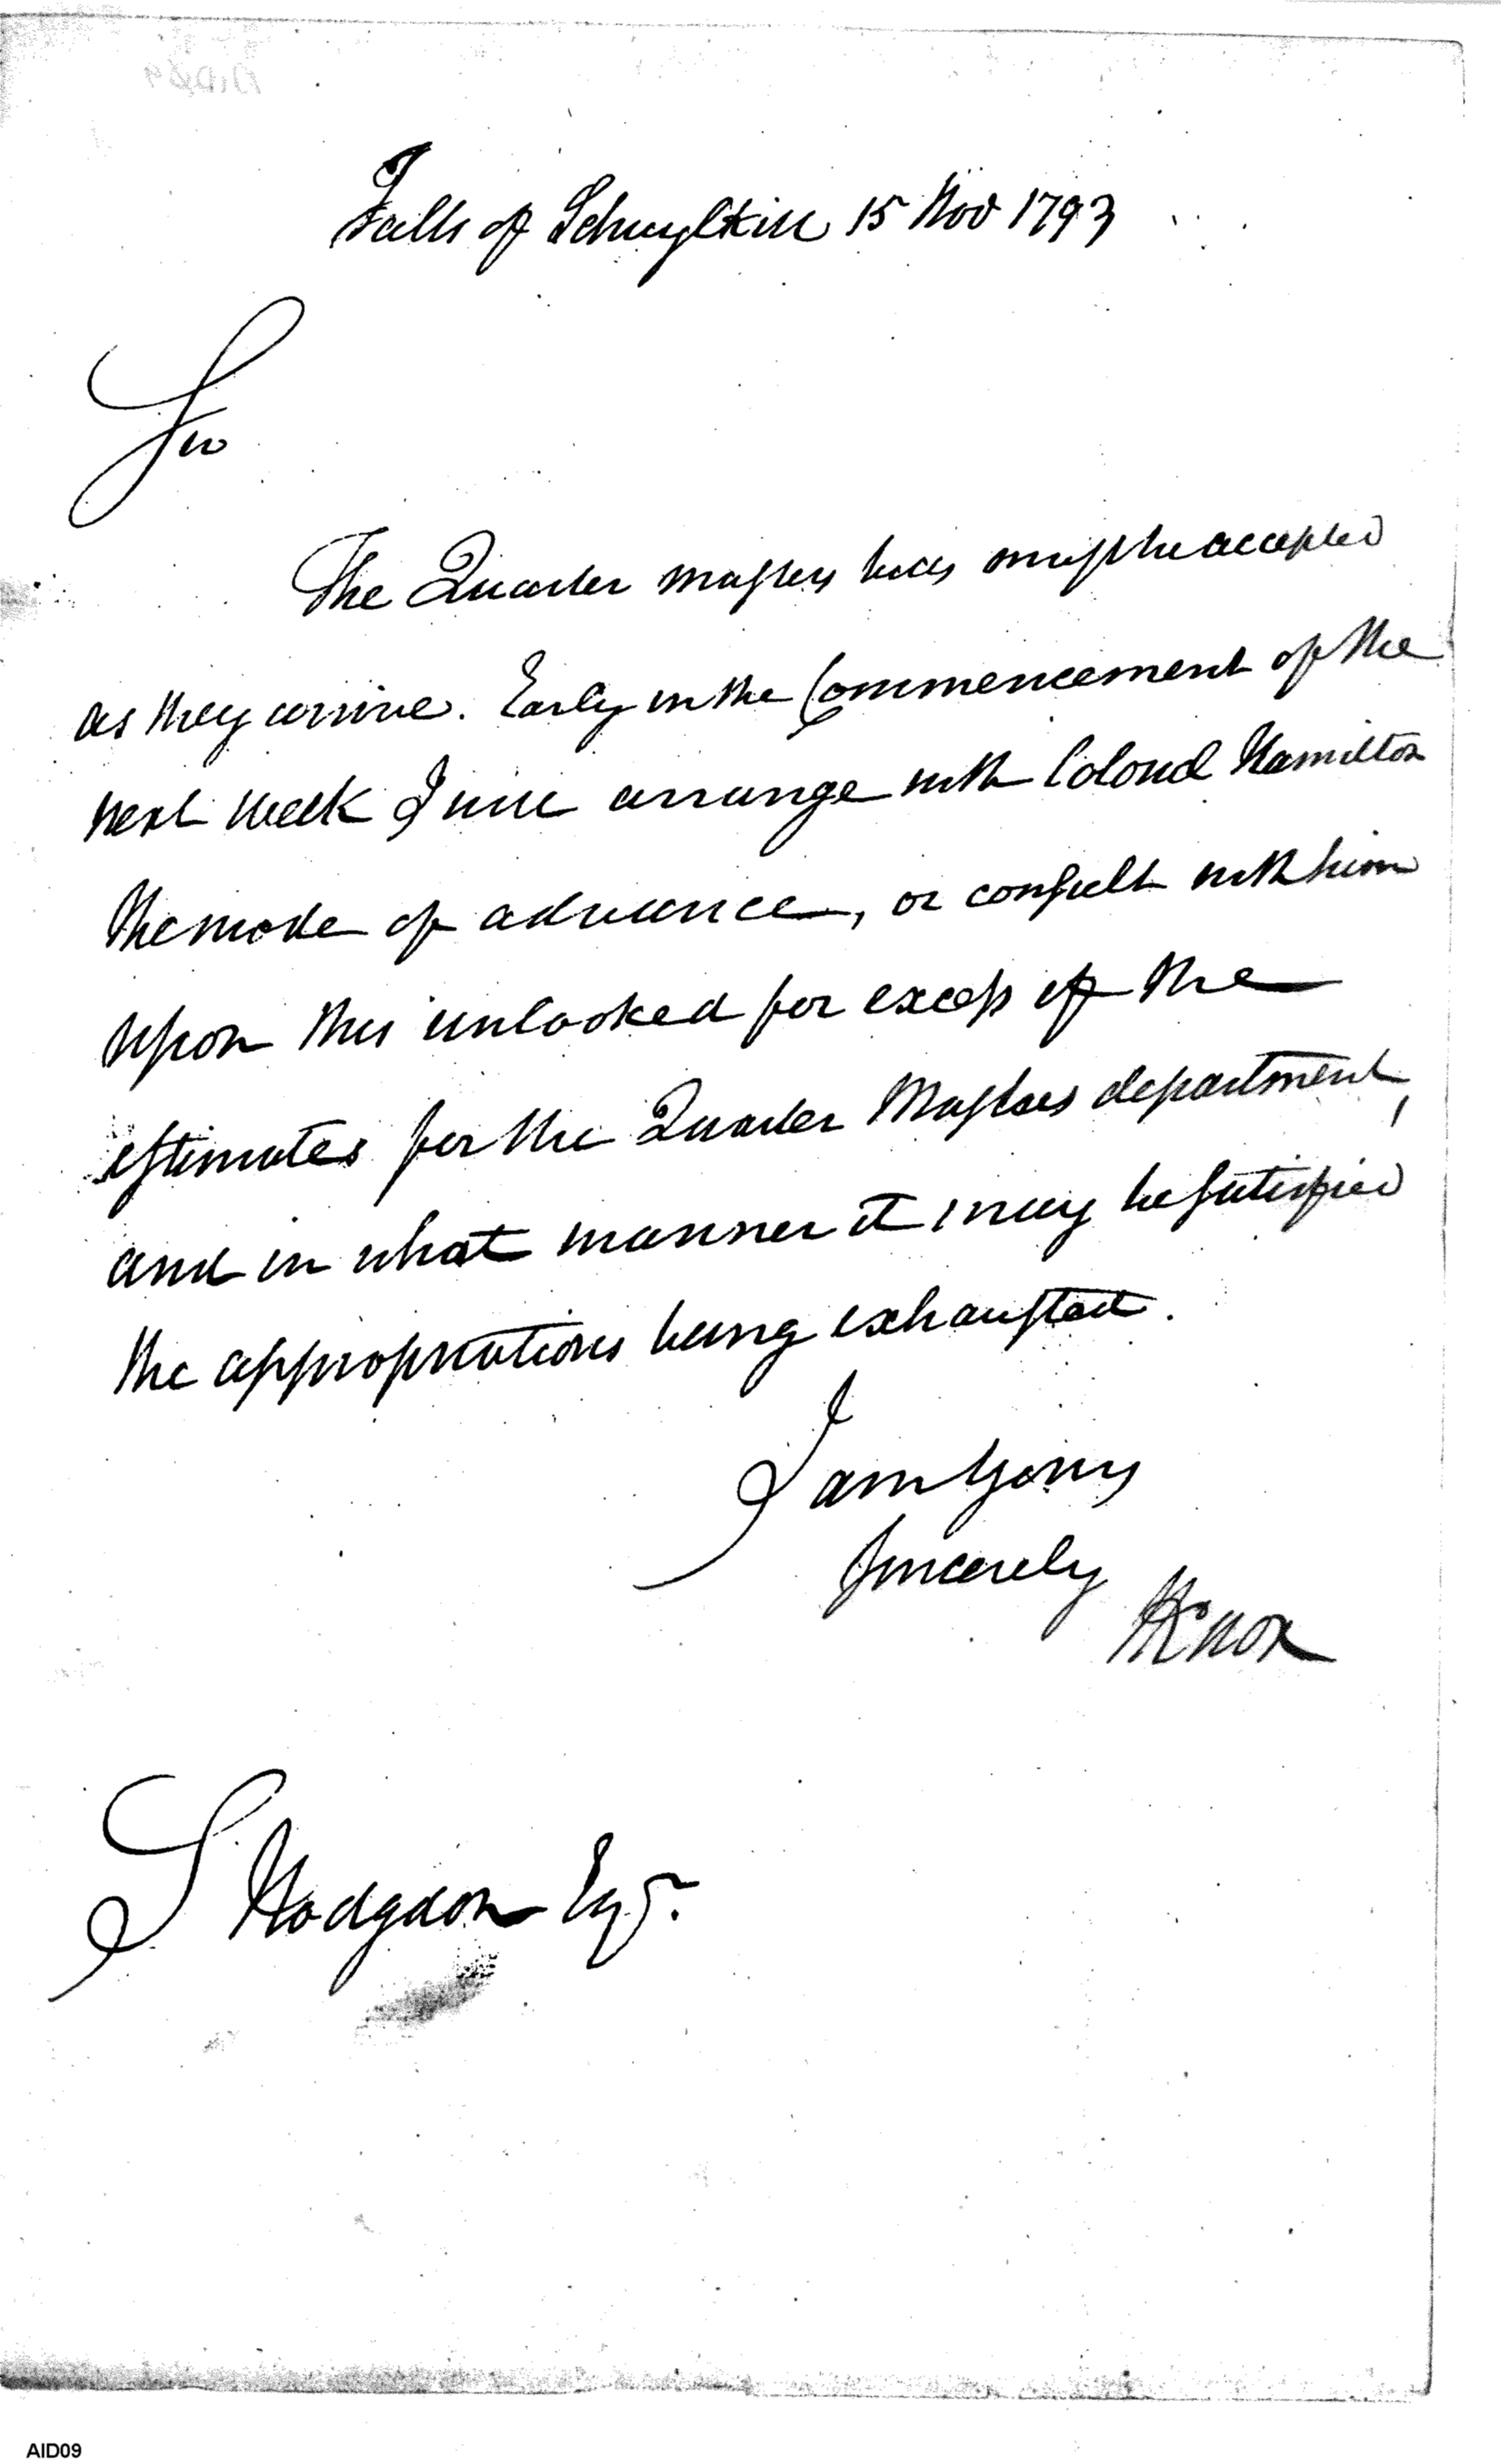 Falls of Schuylkill 15 Nov 1793
Sir
The Quarter masters bills must be accepted
as they arrive. Early in the Commencement of the
next week I will arrange with Colonel Hamilton
the mode of advance, or consult with him
upon this unlooked for excess of the
estimates for the Quarter Masters department,
and in what manner it may be satisfied
the appropriations being exhausted.
I am Yours
Sincerely
HKnox
S Hodgdon Esqr.
AID09